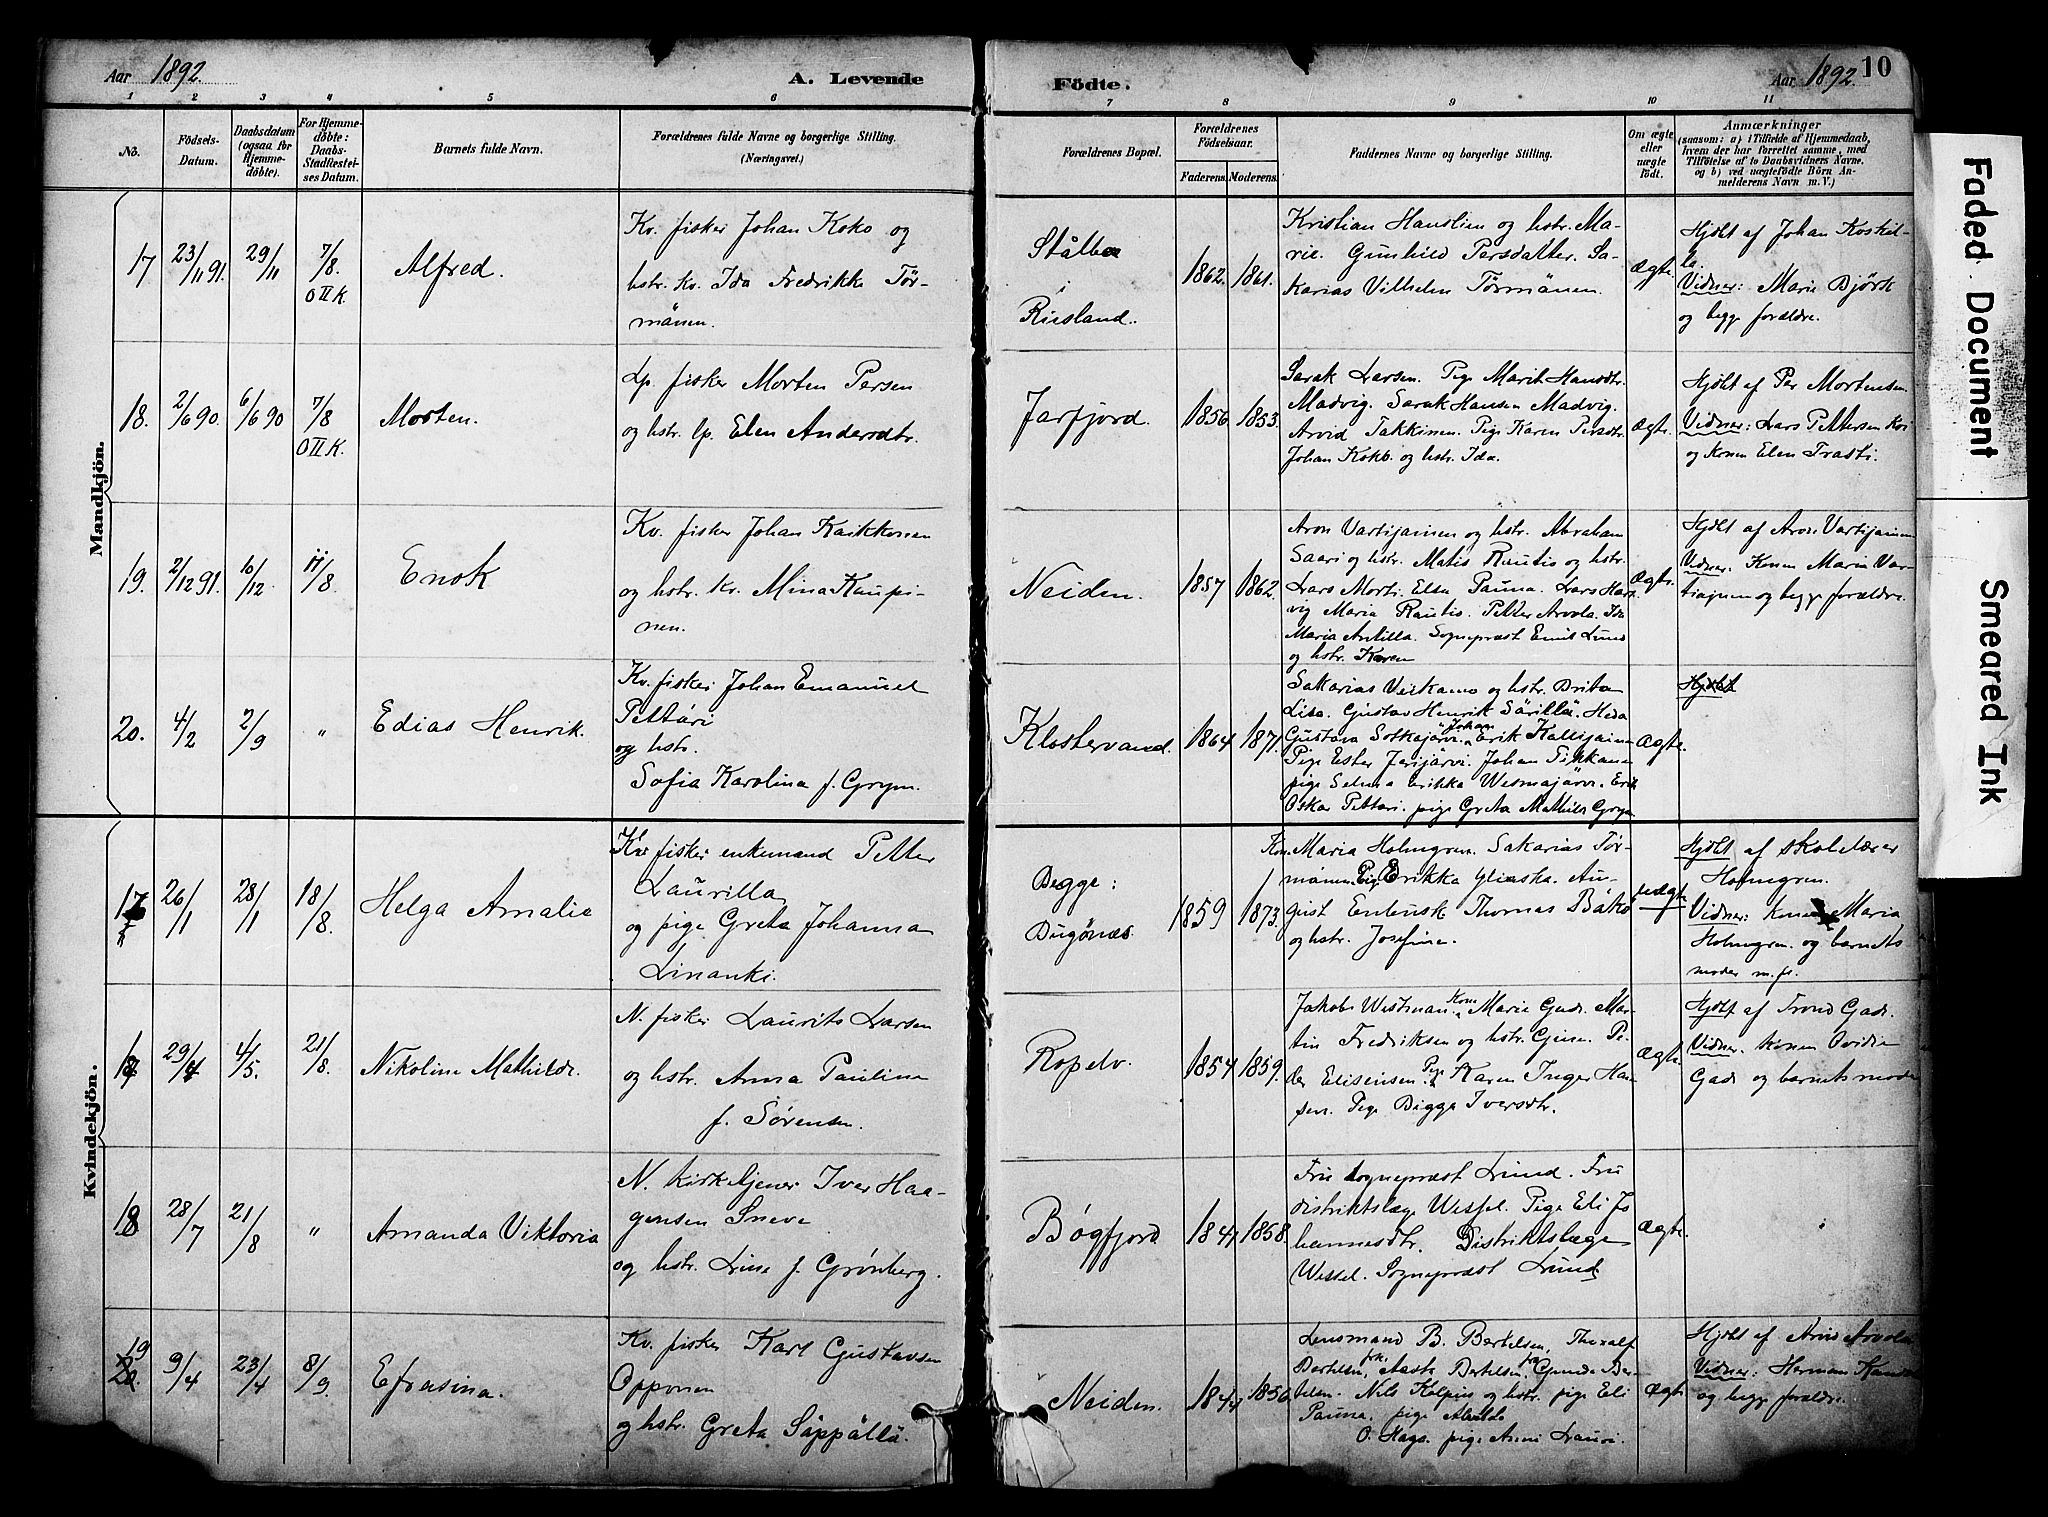 Aar 1892.
A. Levende
Födte.
Aar 1892. 10
1 2 3 4 5 6 7 8 9 10 11
No.
Födsels-
Datum.
Daabsdatum
(ogsaa for
Hjemme-
döbte).
For Hjemme-
döbte:
Daabs-
Stadfæstel-
ses Datum.
Barnets fulde Navn.
Forældrenes fulde Navne og borgerlige Stilling.
(Næringsvei.)
Forældrenes Bopæl.
Forældrenes
Födselsaar.
Faderens. Moderens.
Faddernes Navne og borgerlige Stilling.
Om ægte
eller
uægte
födt.
Anmærkninger
(saasom: a) i Tilfælde af Hjemmedaab,
hvem der har forrettet samme, med
Tilföielse af to Daabsvidners Navne,
og b) ved uægtefödte Börn An-
melderens Navn m. V.)
Mandkjön.
17 23/11 91. 29/11 7/8. O II K. Alfred.
Kv. fisker Johan Koko og
hstr. kv. Ida Fredrikke Tör-
mänen.
Rusland.
1862. 1861.
Kristian Hauslim og hstr. Ma-
rie. Gunhild Persdatter. Sa-
karias Vilhelm Törmänen.
ægte
Hjdbt af Johan
Vidner: Marie Bjørk
og begge forældre.
18. 2/6 90. 6/6 90 7/8 O II K. Morten.
Lp. fisker Morten Persen
og hstr. lp. Elen Andersdtr.
Jarfjord. 1856. 1853.
Sarak Larsen. Pige Marit Hansdtr.
Madvig. Sarak Hansen Madvig.
Arvid Takkinen. Pige Karen Persdtr.
Johan Koko og hstr. Ida.
Ægte.
Hjdbt af Per Mortensen.
Vidner: Lars Pettersen
og konen Elen Trasti.
19. 2/12 91. 10/12 11/8. Enok
Kv. fisker Johan Kaikkonen
og hstr. kv. Mina Kaupi-
nen.
Neiden. 1857 1862.
Aron Vartijainen og hstr. Abraham
Saari og hstr. Matis Rautio og hstr.
Lars Morti. Elsa Pauna. Lars
Maria Rautio. Petter Arvola. Ida
Maria Antilla. Sogneprest Emil Lund
og hstr. Karen
Ægte.
Hjdbt af Aron Vartijainen
Vidner. Konen Maria Var-
tiajnen og begge forældre.
20. 4/2 2/9 " Edias Henrik.
Kv. fisker Johan Emanuel
Pettäri
og hstr.
Sofia Karolina f. Grym.
Klostervand. 1864 1871.
Sakarias Veikamo og hstr. Brita
Lisa. Gustav Henrik Särillä. Heda
Gustava Sotkajärvi. Johan Erik Kallijainen
Pige Ester Jarijärvi. Johan Tikkanen
pige Selma Erikka Wesmajärvi. Erik
Oskar Pettäri. pige Greta Mathilda Grym
Ægte.
Hjdbt
Kvindekjön.
17 26/1 28/1 18/8. Helga Amalie
Kv. fisker enkemand Petter
Laurilla
og pige Greta Johanna
Linanki.
Begge:
Bugönæs. 1859 1873.
Kone Maria Holmgren. Sakarias Tör-
mänen. Pige Erikka Gliaska. Au-
gust Enbusk. Thomas Bäkö
og hstr. Josefine.
uægte
Hjdbt af skolelærer
Holmgren.
Vidner: Konen Maria
Holmgren. og barnets
moder m. fl.
29/4 4/5. 21/8. Nikoline Mathilde.
N. fisker Laurits Larsen
og hstr. Anna Pauline
f. Sörensen.
Ropelv. 1854 1859.
Jakob Westman. Kone Marie Gade. Mar-
tin Fredriksen og hstr. Gjene. Pe-
der Elisensen. Pige Karen Inger Han-
sen. Pige Bigge Iversdtr.
Ægte.
Hjdbt af Trond Gade.
Vidner. Konen Ovidia
Gade og barnets moder
18 28/7 21/8 " Amanda Viktoria
N. kirketjener Iver Haa-
gensen Sneve
og hstr. Lina f. Grönberg.
Bögfjord 1841 1858.
Fru sogneprest Lund. Fru
distriktslæge Wessel. Pige Eli Jo
hannesdtr. Distriktslæge
Wessel. Sogneprest Lund.
Ægte.
19 9/4 23/4 8/9. Efrasina.
Kv. fisker Karl Gustavsen
Opponen
og hstr. Greta Säppällä.
Neiden. 1844 1850.
Lensmand B. Bertelsen, Thoralf
Bertelsen, frk. Aasta Bertelsen, frk. Gunda Ber-
telsen. Nils Kolpus og hstr. pige Eli
Pauna. pige Alvilde
O. Hage. pige Anni Lauri.
Ægte
Hjdbt af Arvid Arvola
Vidner: Herman
og begge forældre.
Faded Document
Smeared Ink